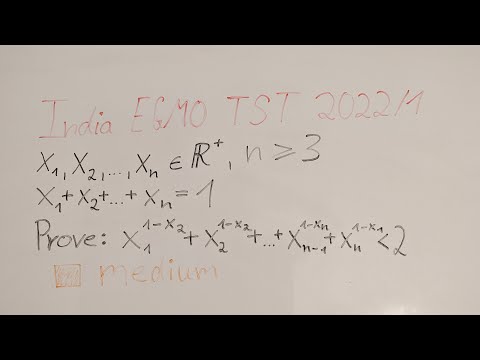 India EGMO TST 2022/1
X₁, X₂, ..., Xₙ ∈ ℝ⁺, n ≥ 3
X₁ + X₂ + ... + Xₙ = 1
Prove: X₁^(1-X₂) + X₂^(1-X₃) + ... + Xₙ₋₁^(1-Xₙ) + Xₙ^(1-X₁) < 2
medium